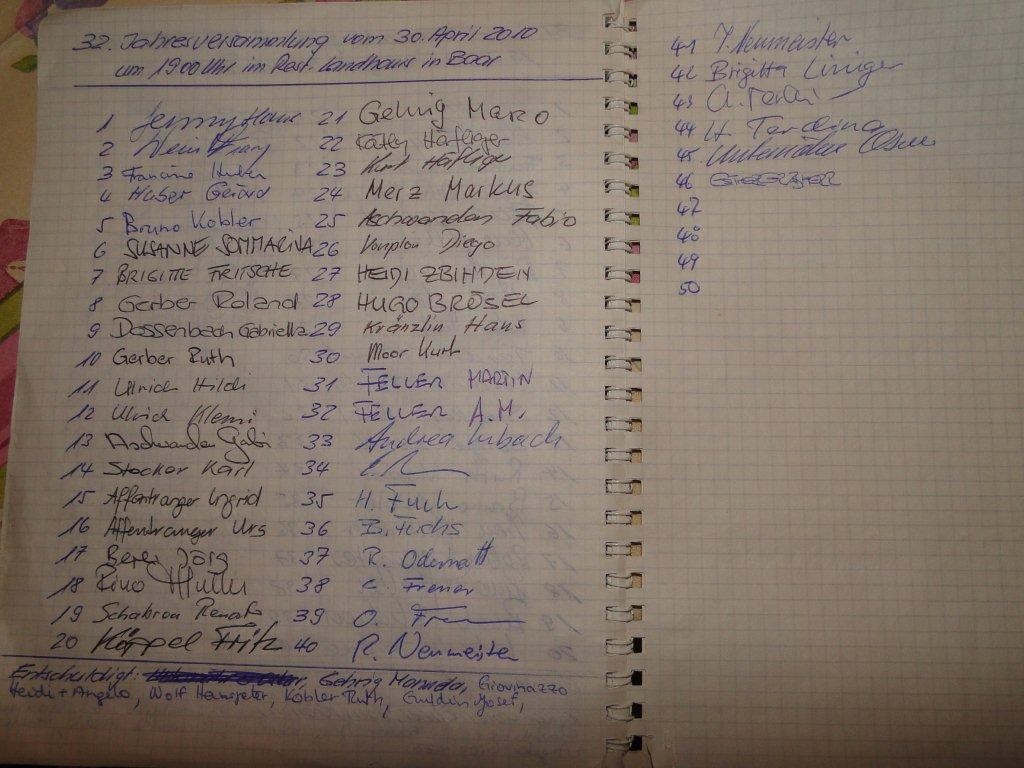 32. Jahresversammlung vom 30. April 2010
um 19 00 Uhr im Rest. Landhaus in Baar
1
2
3 Francine Huber
4 Huber Gérard
5 Bruno Kobler
6 SUSANNE SOMMARIVA
7 BRIGITTE FRITSCHE
8 Gerber Roland
9 Dossenbach Gabriella
10 Gerber Ruth
11 Ullrich Hildi
12 Ulrich Klemi
13 Aschwanden Gabi
14 Stocker Karl
15 Affentranger Ingrid
16 Affentranger Urs
17 Jörg
18 Rino
19 Renato
20 Köppel Fritz
21 Gehrig Marco
22 Käthy Häfliger
23 Kurt Häfliger
24 Merz Markus
25 Aschwanden Fabio
26 Vonplon Diego
27 HEIDI ZBINDEN
28 HUGO BRÖSEL
29 Kränzlin Hans
30 Moor Kurt
31 FELLER MARTIN
32 FELLER A.M.
33 Andrea Imbach
34
35 H. Fuchs
36 B. Fuchs
37 R. Odermatt
38
39 O.
40 R. Neumeister
Entschuldigt: Gehrig Manuela, Giovinazzo
Heidi + Angelo, Wolf Hanspeter, Kobler Ruth, Josef,
41 Neumeister
42 Brigitta Liniger
43
44
45
46
47
48
49
50